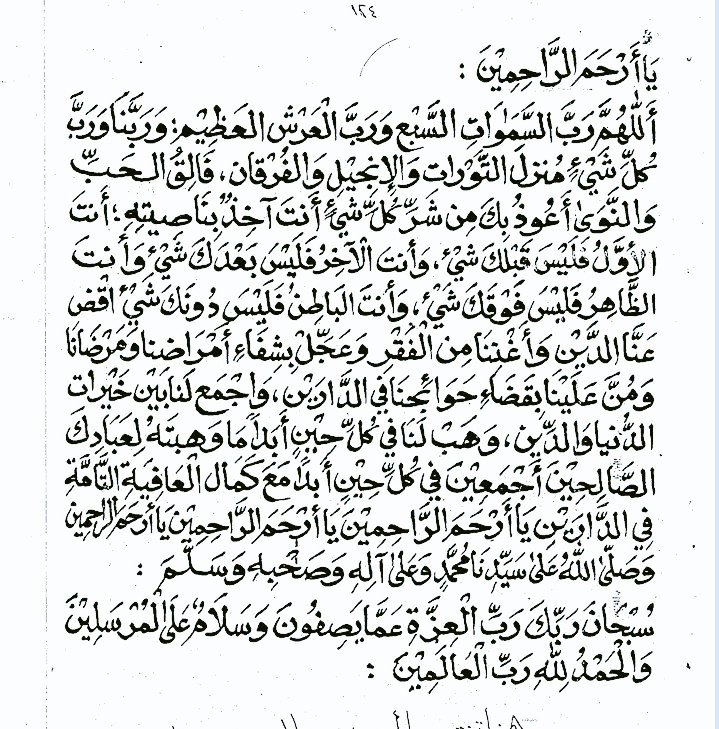 ١٢٤
يَا أَرْحَمَ الرَّاحِمِيْنَ :
أَللّٰهُمَّ رَبَّ السَّمٰوَاتِ السَّبْعِ وَرَبَّ الْعَرْشِ الْعَظِيْمِ؛ وَرَبَّنَا وَرَبَّ
كُلِّ شَيْءٍ مُنْزِلَ التَّوْرَاتِ وَالْإِنْجِيْلِ وَالْفُرْقَانِ، فَالِقُ الْحَبِّ
وَالنَّوٰى أَعُوْذُ بِكَ مِنْ شَرِّ كُلِّ شَيْءٍ أَنْتَ آخِذٌ بِنَاصِيَتِهِ؛ أَنْتَ
الْأَوَّلُ فَلَيْسَ قَبْلَكَ شَيْءٌ، وَأَنْتَ الْآخِرُ فَلَيْسَ بَعْدَكَ شَيْءٌ وَأَنْتَ
الظَّاهِرُ فَلَيْسَ فَوْقَكَ شَيْءٌ، وَأَنْتَ الْبَاطِنُ فَلَيْسَ دُوْنَكَ شَيْءٌ اقْضِ
عَنَّا الدَّيْنَ وَأَغْنِنَا مِنَ الْفَقْرِ وَعَجِّلْ بِشِفَاءِ أَمْرَاضِنَا وَمَرْضَانَا
وَمُنَّ عَلَيْنَا بِقَضَاءِ حَوَائِجِنَا فِي الدَّارَيْنِ، وَاجْمَعْ لَنَا بَيْنَ خَيْرَاتِ
الدُّنْيَا وَالدِّيْنِ، وَهَبْ لَنَا فِي كُلِّ حِيْنٍ أَبَدًا مَا وَهَبْتَهُ لِعِبَادِكَ
الصَّالِحِيْنَ أَجْمَعِيْنَ فِي كُلِّ حِيْنٍ أَبَدًا مَعَ كَمَالِ الْعَافِيَةِ التَّامَّةِ
فِي الدَّارَيْنِ يَا أَرْحَمَ الرَّاحِمِيْنَ يَا أَرْحَمَ الرَّاحِمِيْنَ يَا أَرْحَمَ الرَّاحِمِيْنَ
وَصَلَّى اللّٰهُ عَلَى سَيِّدِنَا مُحَمَّدٍ وَعَلَى آلِهِ وَصَحْبِهِ وَسَلَّمَ :
سُبْحَانَ رَبِّكَ رَبِّ الْعِزَّةِ عَمَّا يَصِفُوْنَ وَسَلَامٌ عَلَى الْمُرْسَلِيْنَ
وَالْحَمْدُ لِلّٰهِ رَبِّ الْعَالَمِيْنَ :